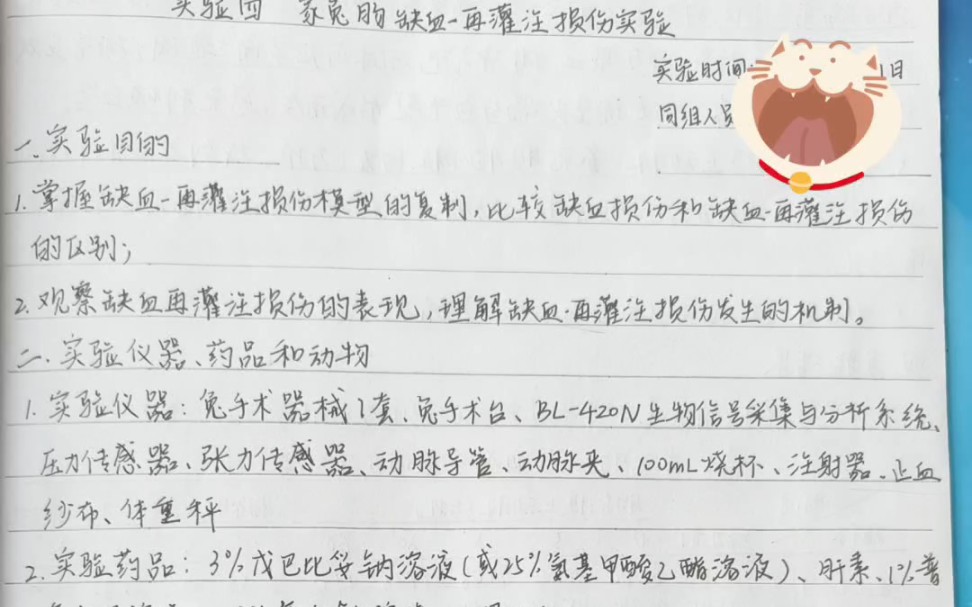 实验四 家兔的缺血-再灌注损伤实验
实验时间: 1日
同组人员
一. 实验目的
1. 掌握缺血-再灌注损伤模型的复制,比较缺血损伤和缺血-再灌注损伤
的区别;
2. 观察缺血再灌注损伤的表现,理解缺血-再灌注损伤发生的机制。
二. 实验仪器、药品和动物
1. 实验仪器: 兔手术器械1套、兔手术台、BL-420N生物信号采集与分析系统、
压力传感器、张力传感器、动脉导管、动脉夹、100mL烧杯、注射器、止血
纱布、体重秤
2. 实验药品: 3%戊巴比妥钠溶液(或25%氨基甲酸乙酯溶液)、肝素、1%普